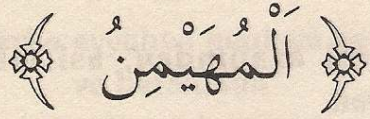 اَلْمُهَيْمِنُ